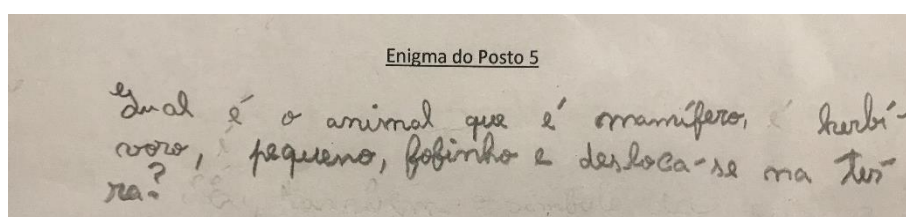 Enigma do Posto 5
Qual é o animal que é mamífero, é herbí-
voro, pequeno, fofinho e desloca-se na ter
ra?